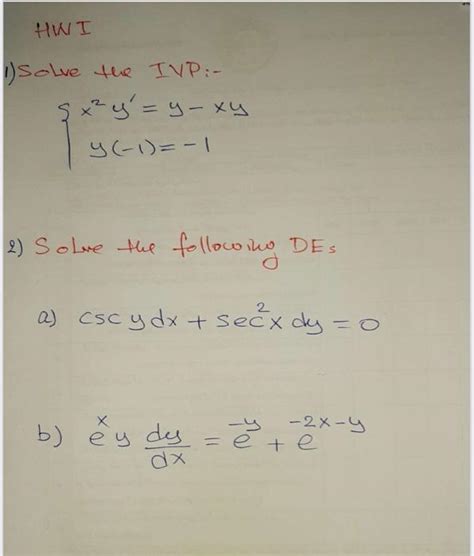 HW I
1) Solve the IVP:-
{ x² y' = y - xy
y(-1) = -1
2) Solve the following DEs
a) csc y dx + sec² x dy = 0
b) eˣ y dy/dx = e⁻ʸ + e⁻²ˣ⁻ʸ